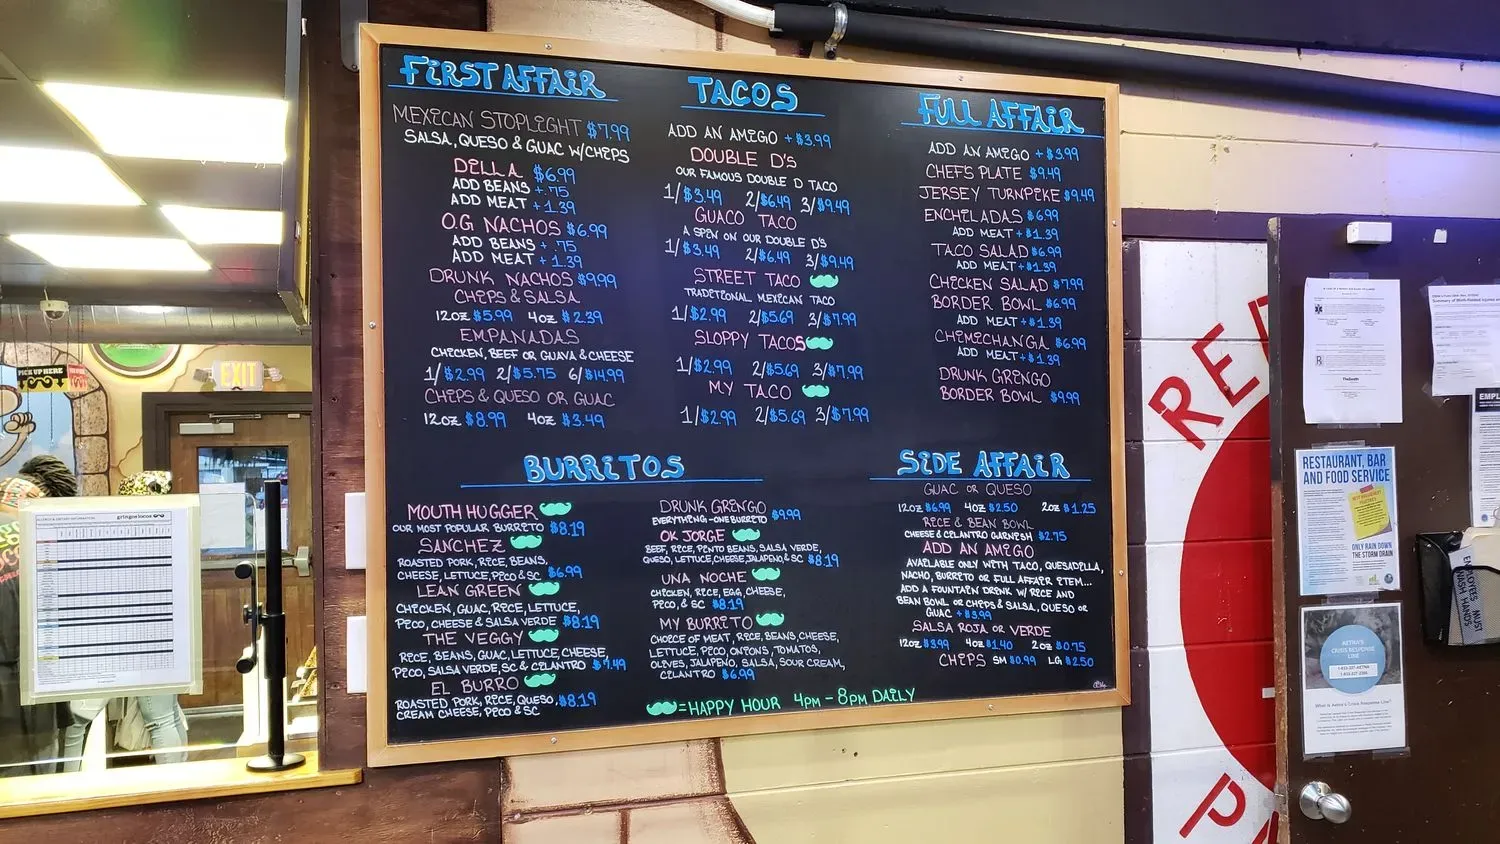 FIRST AFFAIR
MEXICAN STOPLIGHT $7.99
SALSA, QUESO & GUAC W/CHIPS
DILLA $6.99
ADD BEANS +.75
ADD MEAT +1.39
O.G NACHOS $6.99
ADD BEANS +.75
ADD MEAT +1.39
DRUNK NACHOS $9.99
CHIPS & SALSA
12oz $5.99 4oz $2.39
EMPANADAS
CHICKEN, BEEF OR GUAVA & CHEESE
1/$2.99 2/$5.75 6/$14.99
CHIPS & QUESO OR GUAC
12oz $8.99 4oz $3.49
TACOS
ADD AN AMIGO +$3.99
DOUBLE D'S
OUR FAMOUS DOUBLE D TACO
1/$3.49 2/$6.49 3/$9.49
GUACO TACO
A SPIN ON OUR DOUBLE D'S
1/$3.49 2/$6.49 3/$9.49
STREET TACO
TRADITIONAL MEXICAN TACO
1/$2.99 2/$5.69 3/$7.99
SLOPPY TACOS
1/$2.99 2/$5.69 3/$7.99
MY TACO
1/$2.99 2/$5.69 3/$7.99
FULL AFFAIR
ADD AN AMIGO +$3.99
CHEF'S PLATE $9.49
JERSEY TURNPIKE $9.49
ENCHILADAS $6.99
ADD MEAT +$1.39
TACO SALAD $6.99
ADD MEAT +$1.39
CHICKEN SALAD $7.99
BORDER BOWL $6.99
ADD MEAT +$1.39
CHIMICHANGA $6.99
ADD MEAT +$1.39
DRUNK GRINGO
BORDER BOWL $9.99
BURRITOS
MOUTH HUGGER
OUR MOST POPULAR BURRITO $8.19
SANCHEZ
ROASTED PORK, RICE, BEANS,
CHEESE, LETTUCE, PICO & SC $6.99
LEAN GREEN
CHICKEN, GUAC, RICE, LETTUCE,
PICO, CHEESE & SALSA VERDE $8.19
THE VEGGY
RICE, BEANS, GUAC, LETTUCE, CHEESE,
PICO, SALSA VERDE, SC & CILANTRO $7.49
EL BURRO
ROASTED PORK, RICE, QUESO, $8.19
CREAM CHEESE, PICO & SC
DRUNK GRINGO
EVERYTHING-ONE BURRITO $9.99
OK JORGE
BEEF, RICE, PINTO BEANS, SALSA VERDE,
QUESO, LETTUCE, CHEESE, JALAPENO & SC $8.19
UNA NOCHE
CHICKEN, RICE, EGG, CHEESE,
PICO, & SC $8.19
MY BURRITO
CHOICE OF MEAT, RICE, BEANS, CHEESE,
LETTUCE, PICO, ONIONS, TOMATOS,
OLIVES, JALAPENO, SALSA, SOUR CREAM,
CILANTRO $6.99
=HAPPY HOUR 4PM - 8PM DAILY
SIDE AFFAIR
GUAC OR QUESO
12oz $6.99 4oz $2.50 2oz $1.25
RICE & BEAN BOWL
CHEESE & CILANTRO GARNISH $2.75
ADD AN AMIGO
AVAILABLE ONLY WITH TACO, QUESADILLA,
NACHO, BURRITO OR FULL AFFAIR ITEM...
ADD A FOUNTAIN DRINK W/ RICE AND
BEAN BOWL OR CHIPS & SALSA, QUESO OR
GUAC +$3.99
SALSA ROJA OR VERDE
12oz $3.99 4oz $1.40 2oz $0.75
CHIPS SM $0.99 LG $2.50
PICK UP HERE
EXIT
gringos locos
RESTAURANT, BAR
AND FOOD SERVICE
ONLY RAIN DOWN
THE STORM DRAIN
AETNA'S
CRISIS RESPONSE
LINE
What is Aetna's Crisis Response Line?
EMPLOYEES MUST
WASH HANDS